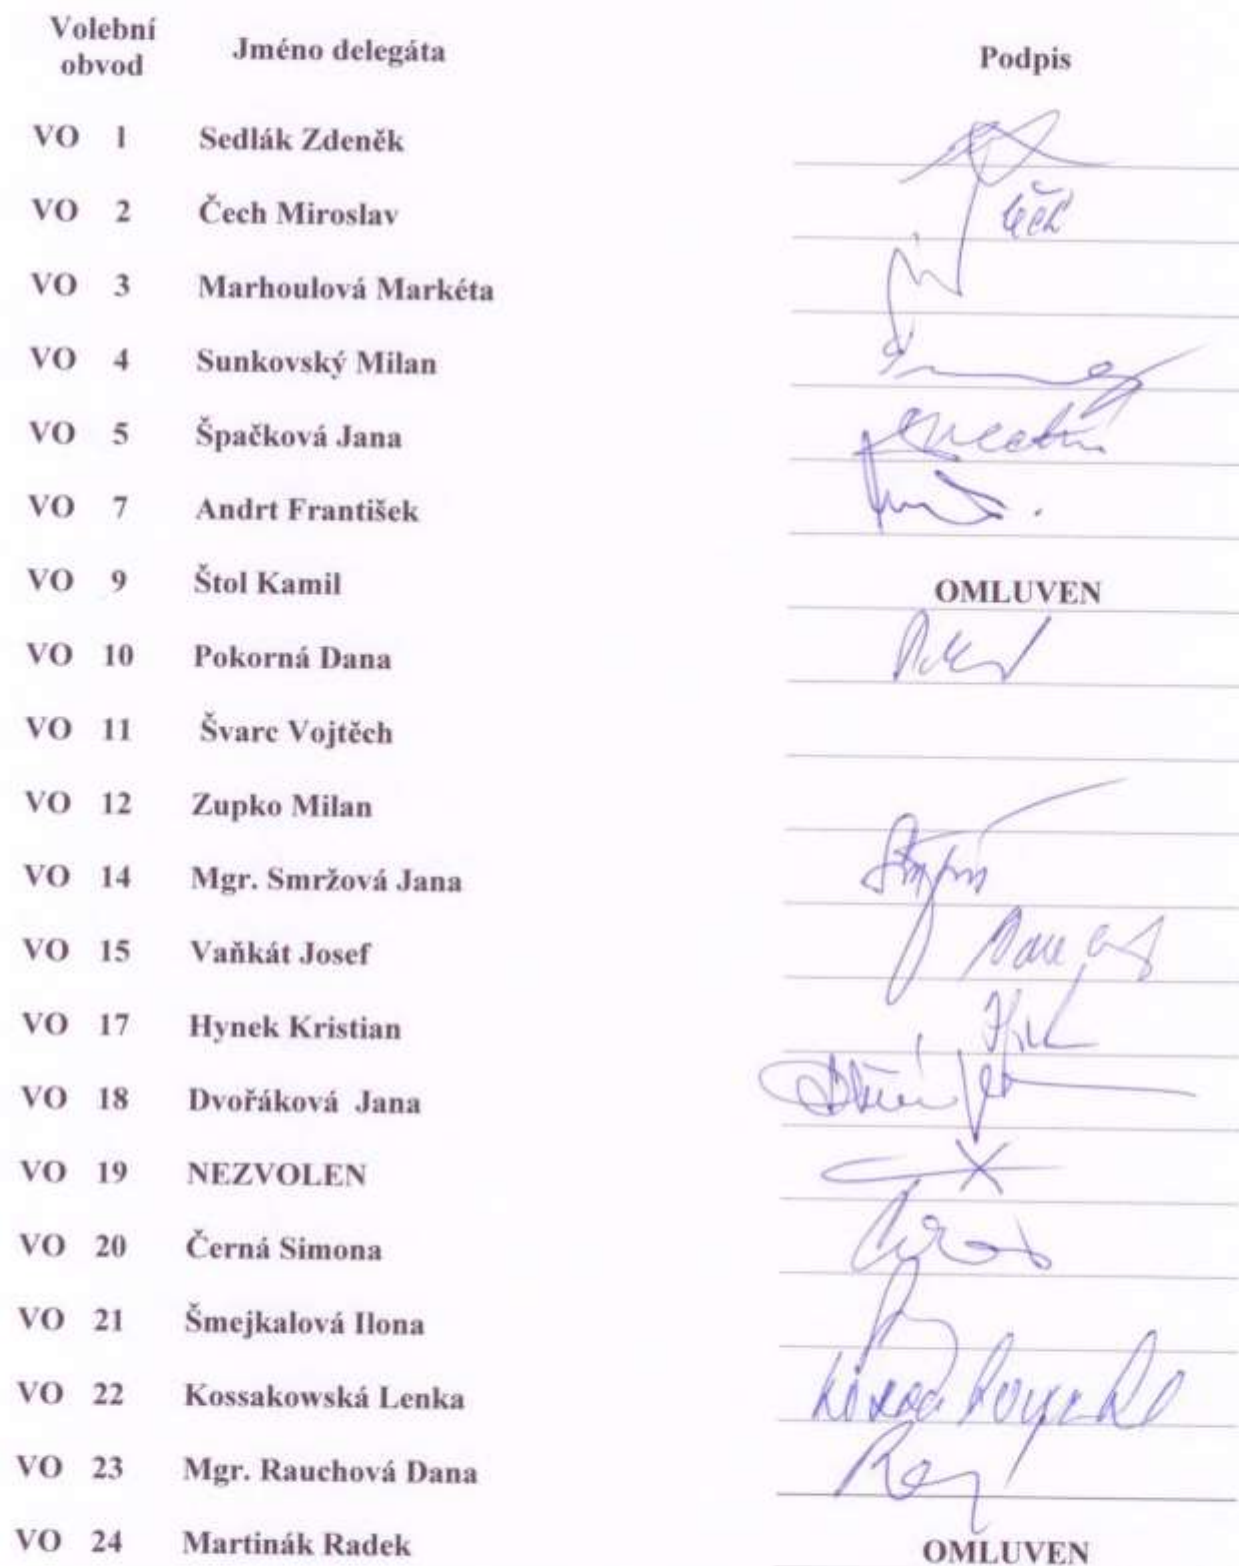 Volební obvod Jméno delegáta Podpis
VO 1 Sedlák Zdeněk
VO 2 Čech Miroslav Čech
VO 3 Marhoulová Markéta
VO 4 Sunkovský Milan
VO 5 Špačková Jana
VO 7 Andrt František
VO 9 Štol Kamil OMLUVEN
VO 10 Pokorná Dana
VO 11 Švarc Vojtěch
VO 12 Zupko Milan
VO 14 Mgr. Smržová Jana
VO 15 Vaňkát Josef
VO 17 Hynek Kristian
VO 18 Dvořáková Jana
VO 19 NEZVOLEN
VO 20 Černá Simona
VO 21 Šmejkalová Ilona
VO 22 Kossakowská Lenka
VO 23 Mgr. Rauchová Dana
VO 24 Martinák Radek OMLUVEN